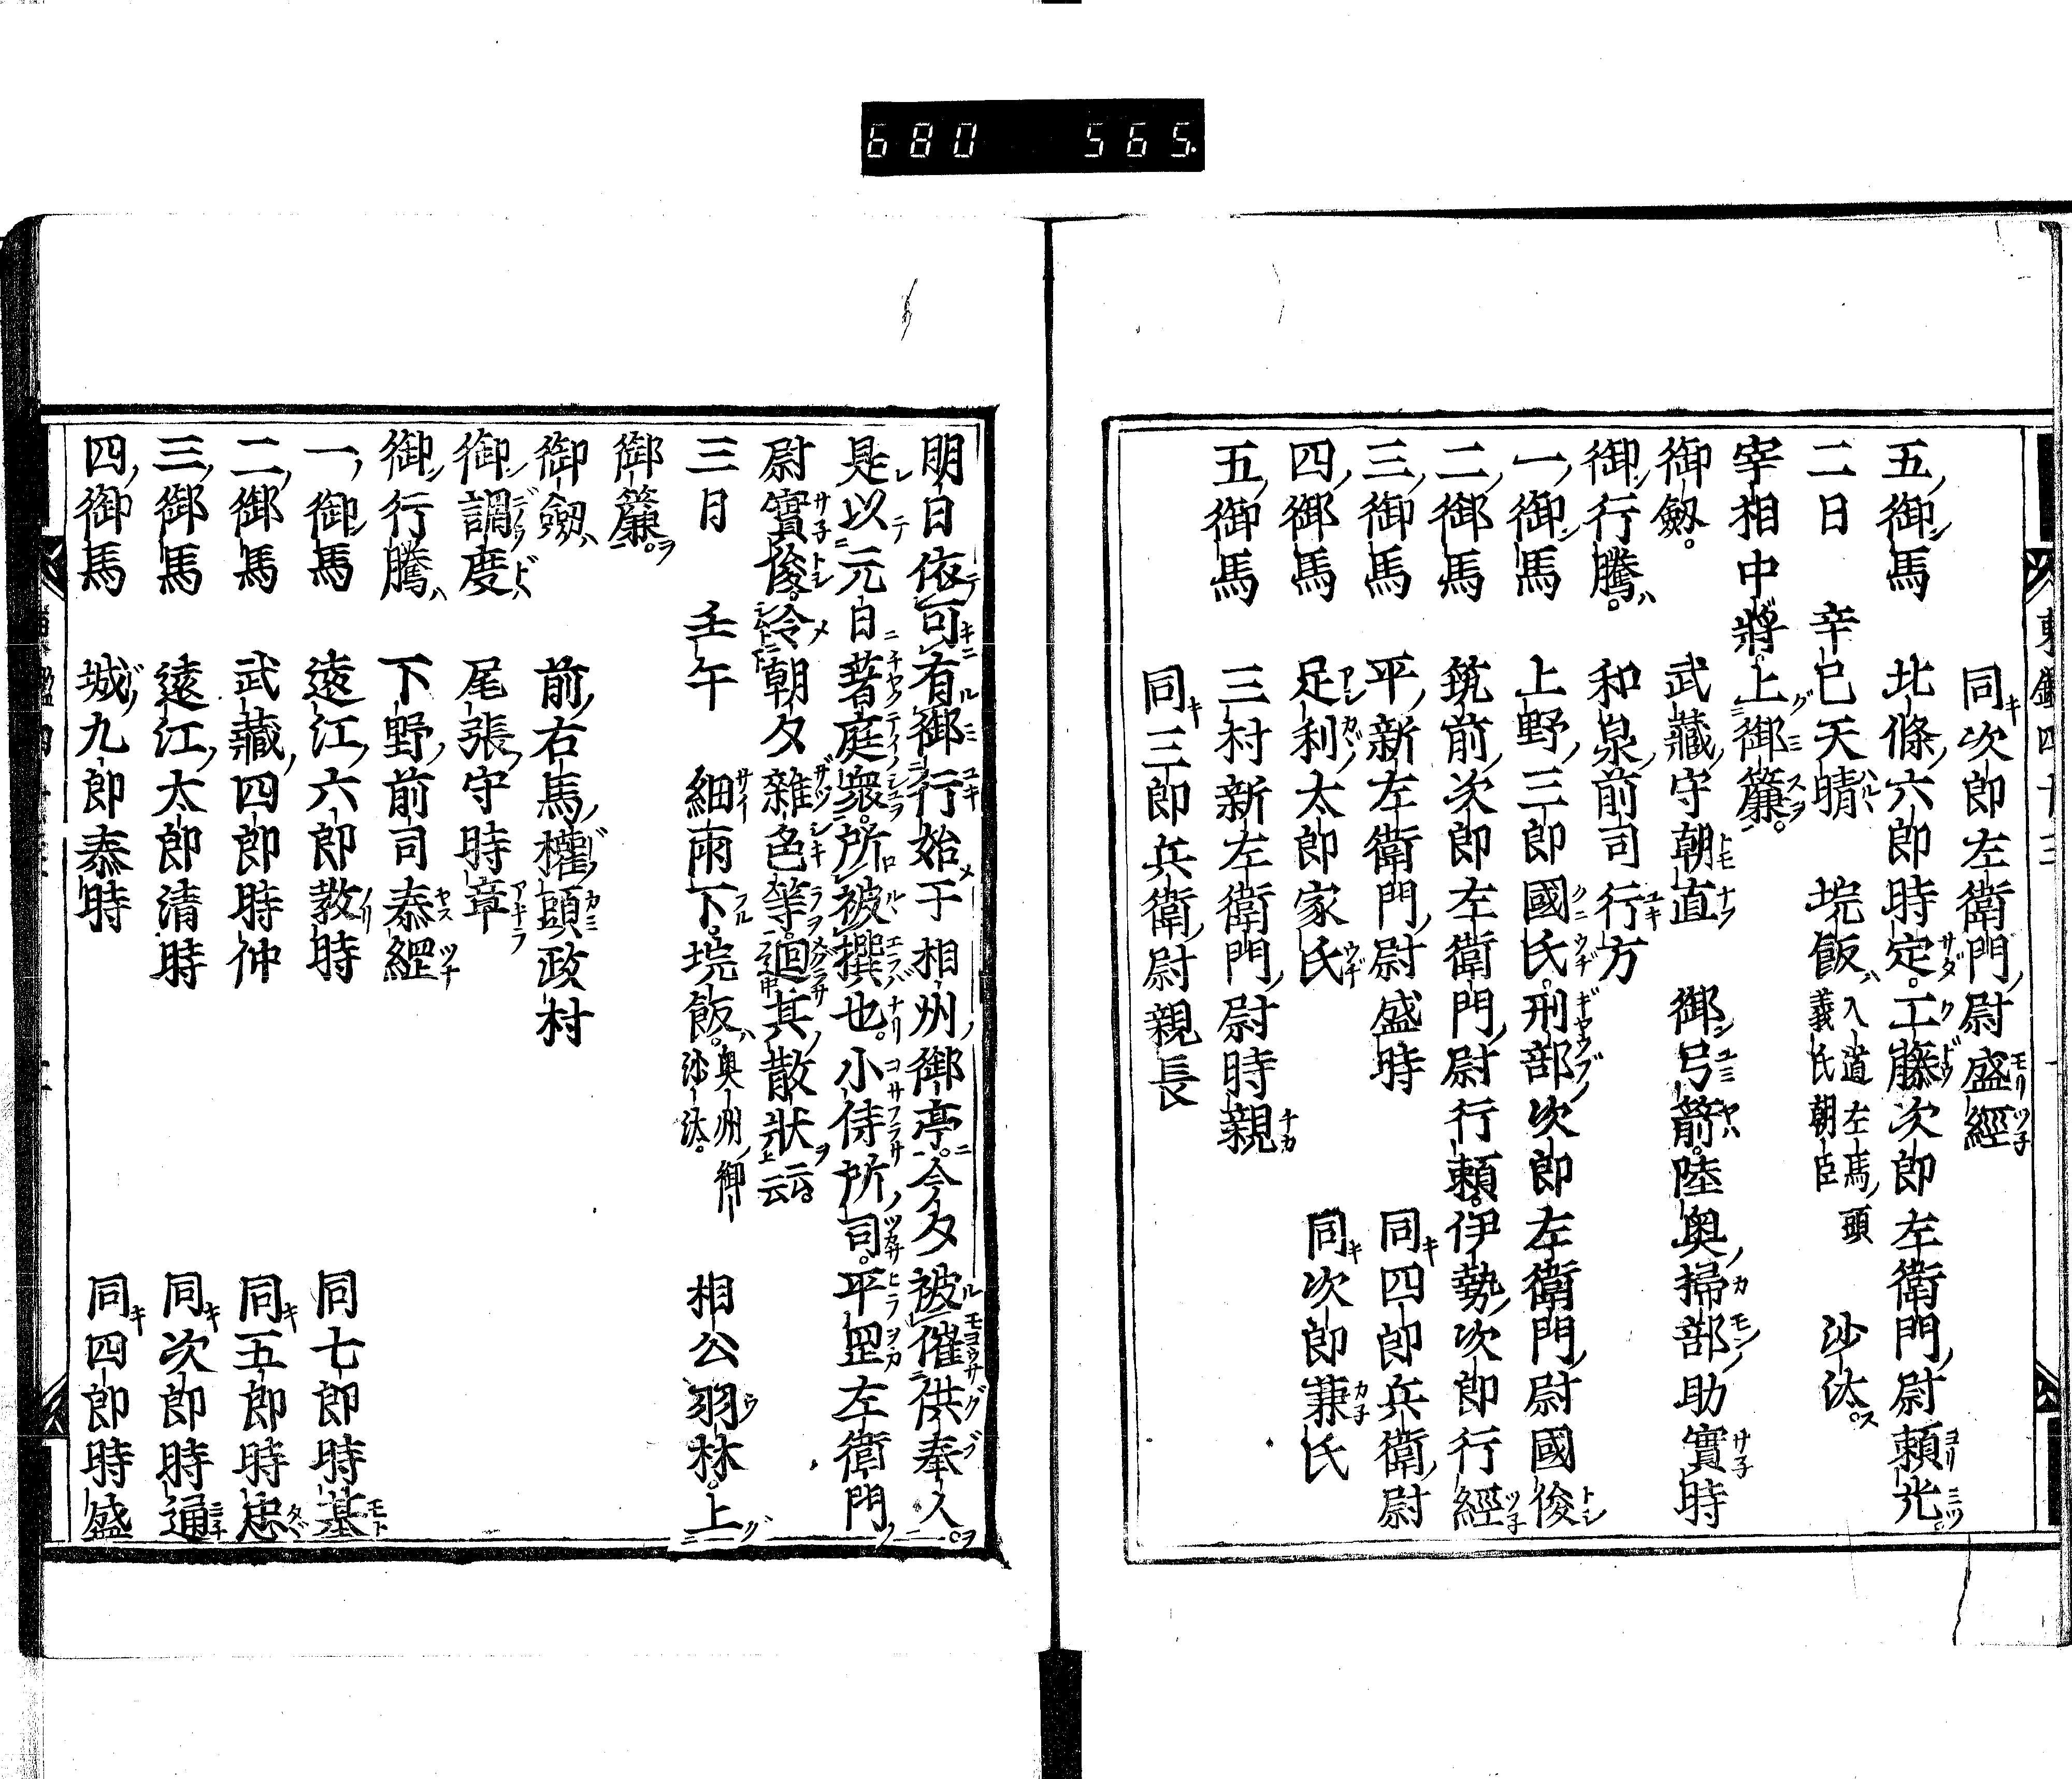 680 565.
同次郎左衛門尉盛經
五御馬 北條六郎時定。工藤次郎左衛門尉頼光。
二日 辛巳天晴 垸飯 入道左馬頭義氏朝臣 沙汰。
宰相中將。上御簾。
御劔。 武藏守朝直 御弓箭。陸奥掃部助實時
御行騰。 和泉前司行方
一御馬 上野三郎國氏。刑部次郎左衛門尉國俊
二御馬 筑前次郎左衛門尉行頼。伊勢次郎行經
三御馬 平新左衛門尉盛時 同四郎兵衛尉
四御馬 足利太郎家氏 同次郎兼氏
五御馬 三村新左衛門尉時親
同三郎兵衛尉親長
明日依可有御行始于相州御亭。今夕被催供奉人。
是以元日著庭衆。所被撰也。小侍所司。平罡左衛門
尉實俊。令朝夕雜色等。廻其散狀云云。
三日 壬午 細雨下。垸飯。奥州御沙汰。 相公羽林。上
御簾。
御劔 前右馬權頭政村
御調度 尾張守時章
御行騰 下野前司泰經
一御馬 遠江六郎教時 同七郎時基
二御馬 武藏四郎時仲 同五郎時忠
三御馬 遠江太郎清時 同次郎時通
四御馬 城九郎泰時 同四郎時盛